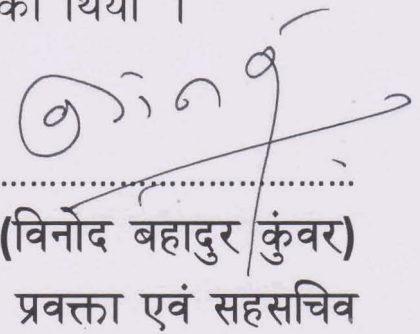 को थियो ।
(विनोद बहादुर कुंवर)
प्रवक्ता एवं सहसचिव